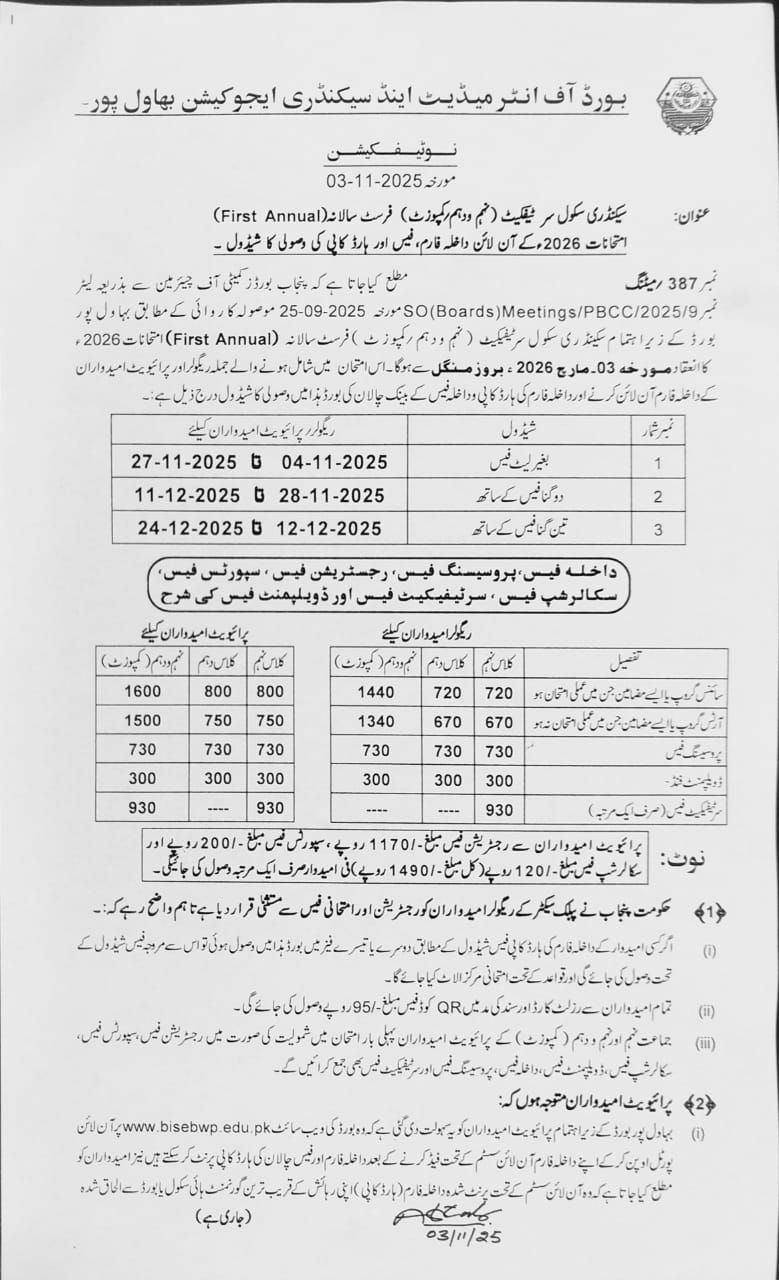 بورڈ آف انٹرمیڈیٹ اینڈ سیکنڈری ایجوکیشن بھاول پور۔
نوٹیفکیشن
مورخہ 03-11-2025
عنوان: سیکنڈری سکول سرٹیفکیٹ (نہم و دہم/کمپوزٹ) فرسٹ سالانہ (First Annual)
امتحانات 2026ء کے آن لائن داخلہ فارم، فیس اور ہارڈ کاپی کی وصولی کا شیڈول ۔
نمبر 387/میٹنگ مطلع کیا جاتا ہے کہ پنجاب بورڈز کمیٹی آف چیئرمین سے بذریعہ لیٹر
نمبر SO(Boards)Meetings/PBCC/2025/9 مورخہ 25-09-2025 موصولہ کاروائی کے مطابق بہاول پور
بورڈ کے زیر اہتمام سیکنڈری سکول سرٹیفکیٹ (نہم و دہم/کمپوزٹ) فرسٹ سالانہ (First Annual) امتحانات 2026ء
کا انعقاد مورخہ 03۔مارچ 2026ء بروز منگل سے ہوگا۔ اس امتحان میں شامل ہونے والے جملہ ریگولر اور پرائیویٹ امیدواران
کے داخلہ فارم آن لائن کرنے اور داخلہ فارم کی ہارڈ کاپی و داخلہ فیس کے بینک چالان کی بورڈ ہذا میں وصولی کا شیڈول درج ذیل ہے:۔
نمبر شمار شیڈول ریگولر/پرائیویٹ امیدواران کیلئے
1 بغیر لیٹ فیس 04-11-2025 تا 27-11-2025
2 دو گنا فیس کے ساتھ 28-11-2025 تا 11-12-2025
3 تین گنا فیس کے ساتھ 12-12-2025 تا 24-12-2025
داخلہ فیس، پروسیسنگ فیس، رجسٹریشن فیس، سپورٹس فیس،
سکالرشپ فیس، سرٹیفیکیٹ فیس اور ڈویلپمنٹ فیس کی شرح
ریگولر امیدواران کیلئے پرائیویٹ امیدواران کیلئے
تفصیل کلاس نہم کلاس دہم نہم و دہم (کمپوزٹ) کلاس نہم کلاس دہم نہم و دہم (کمپوزٹ)
سائنس گروپ یا ایسے مضامین جن میں عملی امتحان ہو 720 720 1440 800 800 1600
آرٹس گروپ یا ایسے مضامین جن میں عملی امتحان نہ ہو 670 670 1340 750 750 1500
پروسیسنگ فیس 730 730 730 730 730 730
ڈویلپمنٹ فنڈ۔ 300 300 300 300 300 300
سرٹیفکیٹ فیس (صرف ایک مرتبہ) 930 ---- ---- 930 ---- 930
نوٹ: پرائیویٹ امیدواران سے رجسٹریشن فیس مبلغ -/1170 روپے، سپورٹس فیس مبلغ -/200 روپے اور
سکالرشپ فیس مبلغ -/120 روپے (کل مبلغ -/1490 روپے) فی امیدوار صرف ایک مرتبہ وصول کی جائیگی۔
﴿1﴾ حکومت پنجاب نے پبلک سیکٹر کے ریگولر امیدواران کو رجسٹریشن اور امتحانی فیس سے مستثنیٰ قرار دیا ہے تاہم واضح رہے کہ:۔
(i) اگر کسی امیدوار کے داخلہ فارم کی ہارڈ کاپی فیس شیڈول کے مطابق دوسرے یا تیسرے فیز میں بورڈ ہذا میں وصول ہوئی تو اس سے مروجہ فیس شیڈول کے
تحت وصول کی جائے گی اور قواعد کے تحت امتحانی مرکز الاٹ کیا جائے گا۔
(ii) تمام امیدواران سے رزلٹ کارڈ اور سند کی مد میں QR کوڈ فیس مبلغ -/95 روپے وصول کی جائے گی۔
(iii) جماعت نہم اور نہم و دہم (کمپوزٹ) کے پرائیویٹ امیدواران پہلی بار امتحان میں شمولیت کی صورت میں رجسٹریشن فیس، سپورٹس فیس،
سکالرشپ فیس، ڈویلپمنٹ فیس، داخلہ فیس، پروسیسنگ فیس اور سرٹیفکیٹ فیس بھی جمع کرائیں گے۔
﴿2﴾ پرائیویٹ امیدواران متوجہ ہوں کہ:
(i) بہاول پور بورڈ کے زیر اہتمام پرائیویٹ امیدواران کو یہ سہولت دی گئی ہے کہ وہ بورڈ کی ویب سائٹ www.bisebwp.edu.pk پر آن لائن
پورٹل اوپن کر کے اپنے داخلہ فارم آن لائن سسٹم کے تحت فیڈ کرنے کے بعد داخلہ فارم اور فیس چالان کی ہارڈ کاپی پرنٹ کر سکتے ہیں نیز امیدواران کو
مطلع کیا جاتا ہے کہ وہ آن لائن سسٹم کے تحت پرنٹ شدہ داخلہ فارم (ہارڈ کاپی) اپنی رہائش کے قریب ترین گورنمنٹ ہائی سکول یا بورڈ سے الحاق شدہ
(جاری ہے)
03/11/25